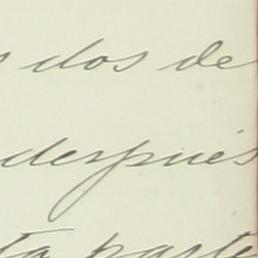 s dos de
después
ta parte